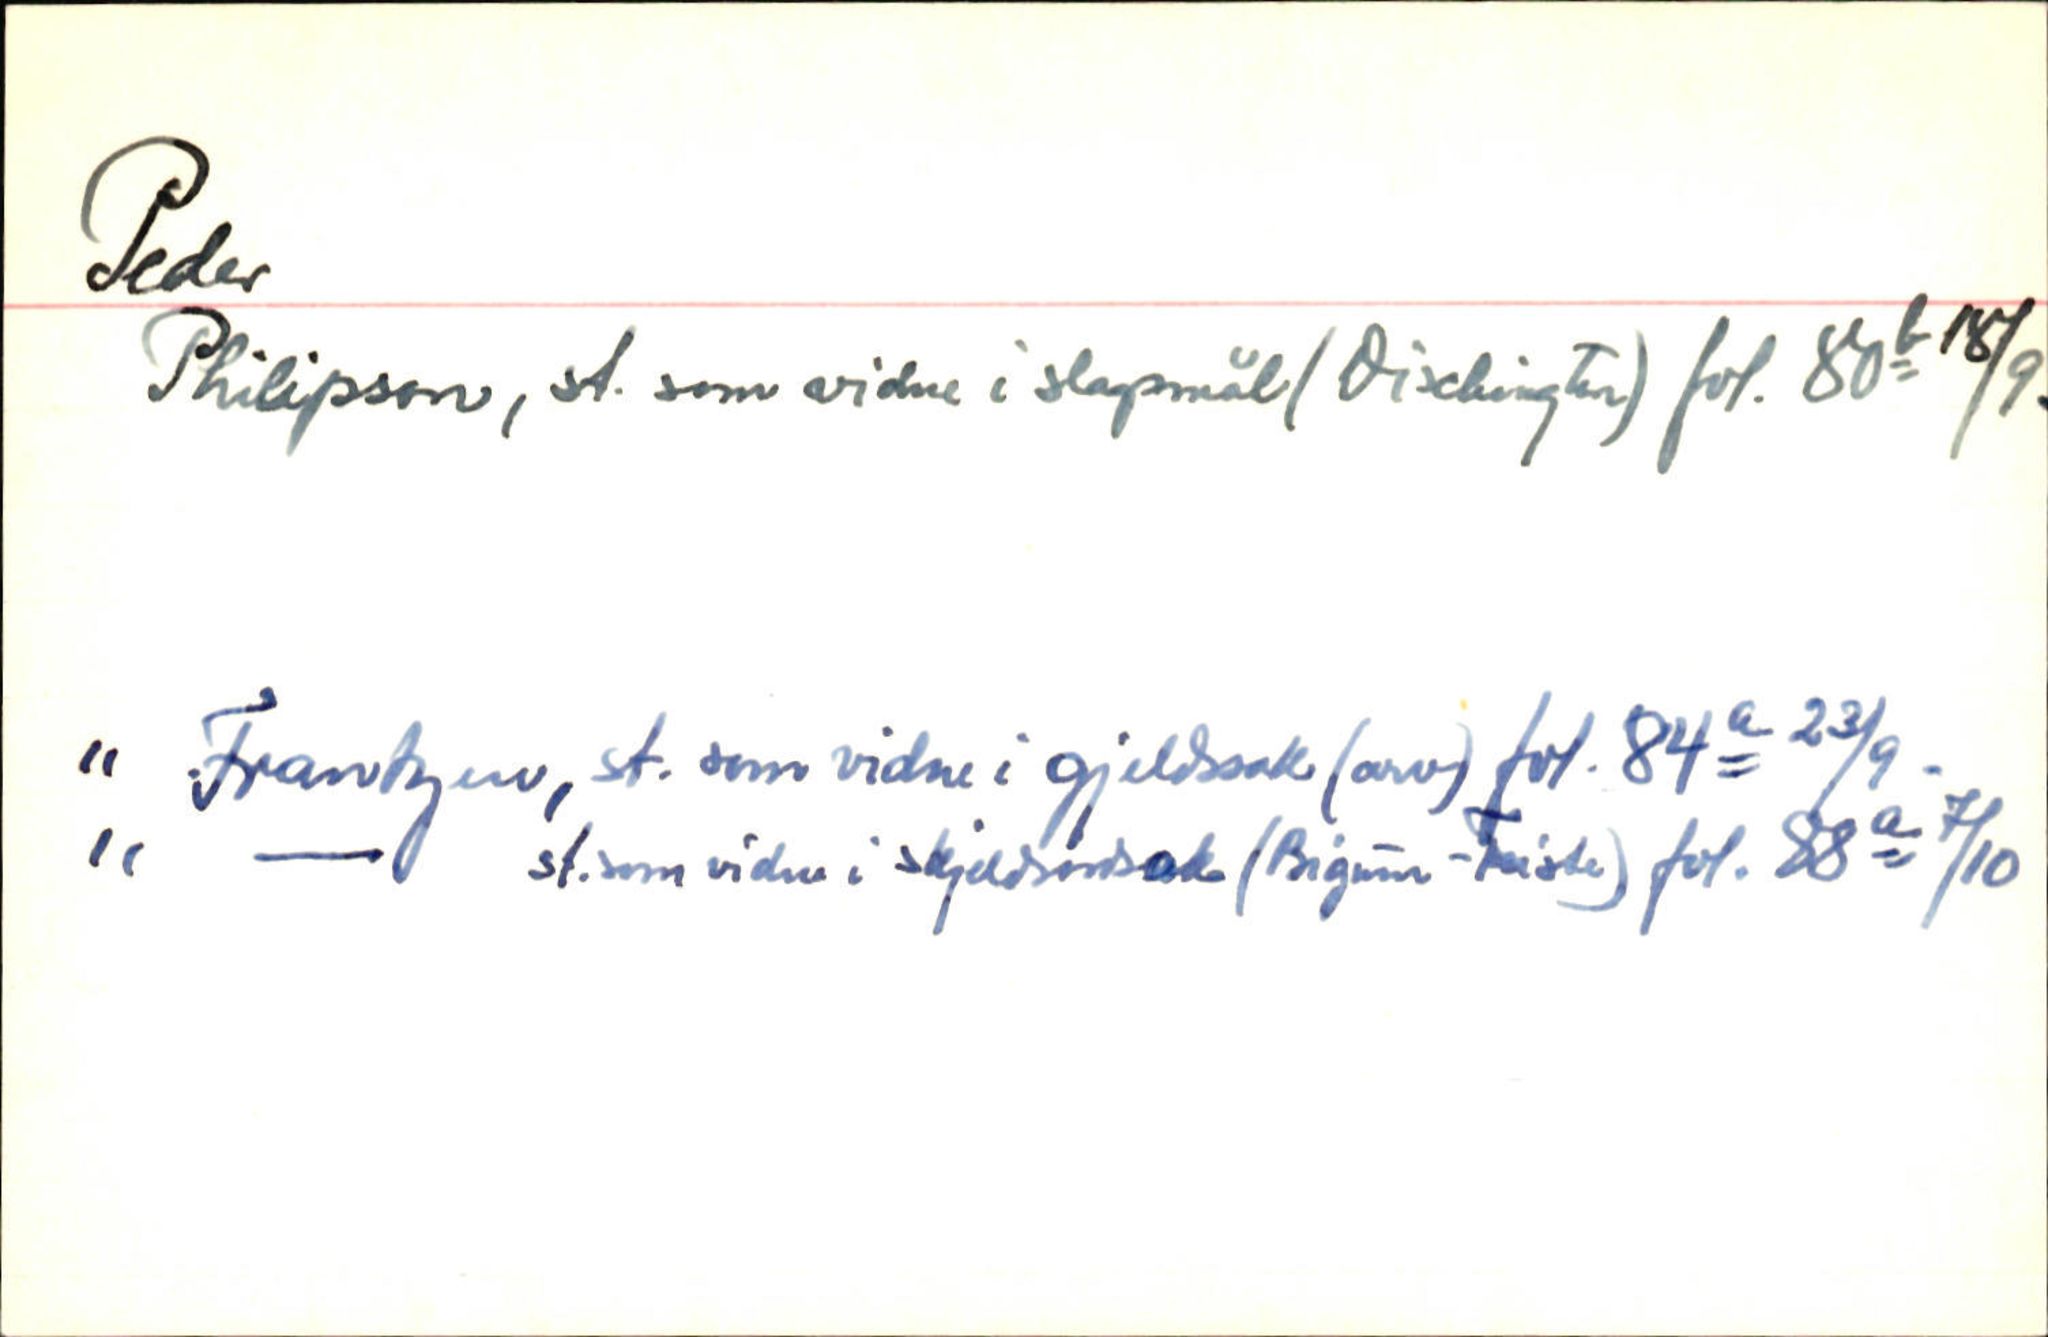 Peder
Philipson, st. som vidne i slagsmål (Dischington) fol. 80b 18/9.
" Frantzen, st. som vidne i gjeldssak (arv) fol. 84a 23/9.
" — st. som vidne i skjeldsordsak (Bigum - Feiste) fol. 88a 7/10